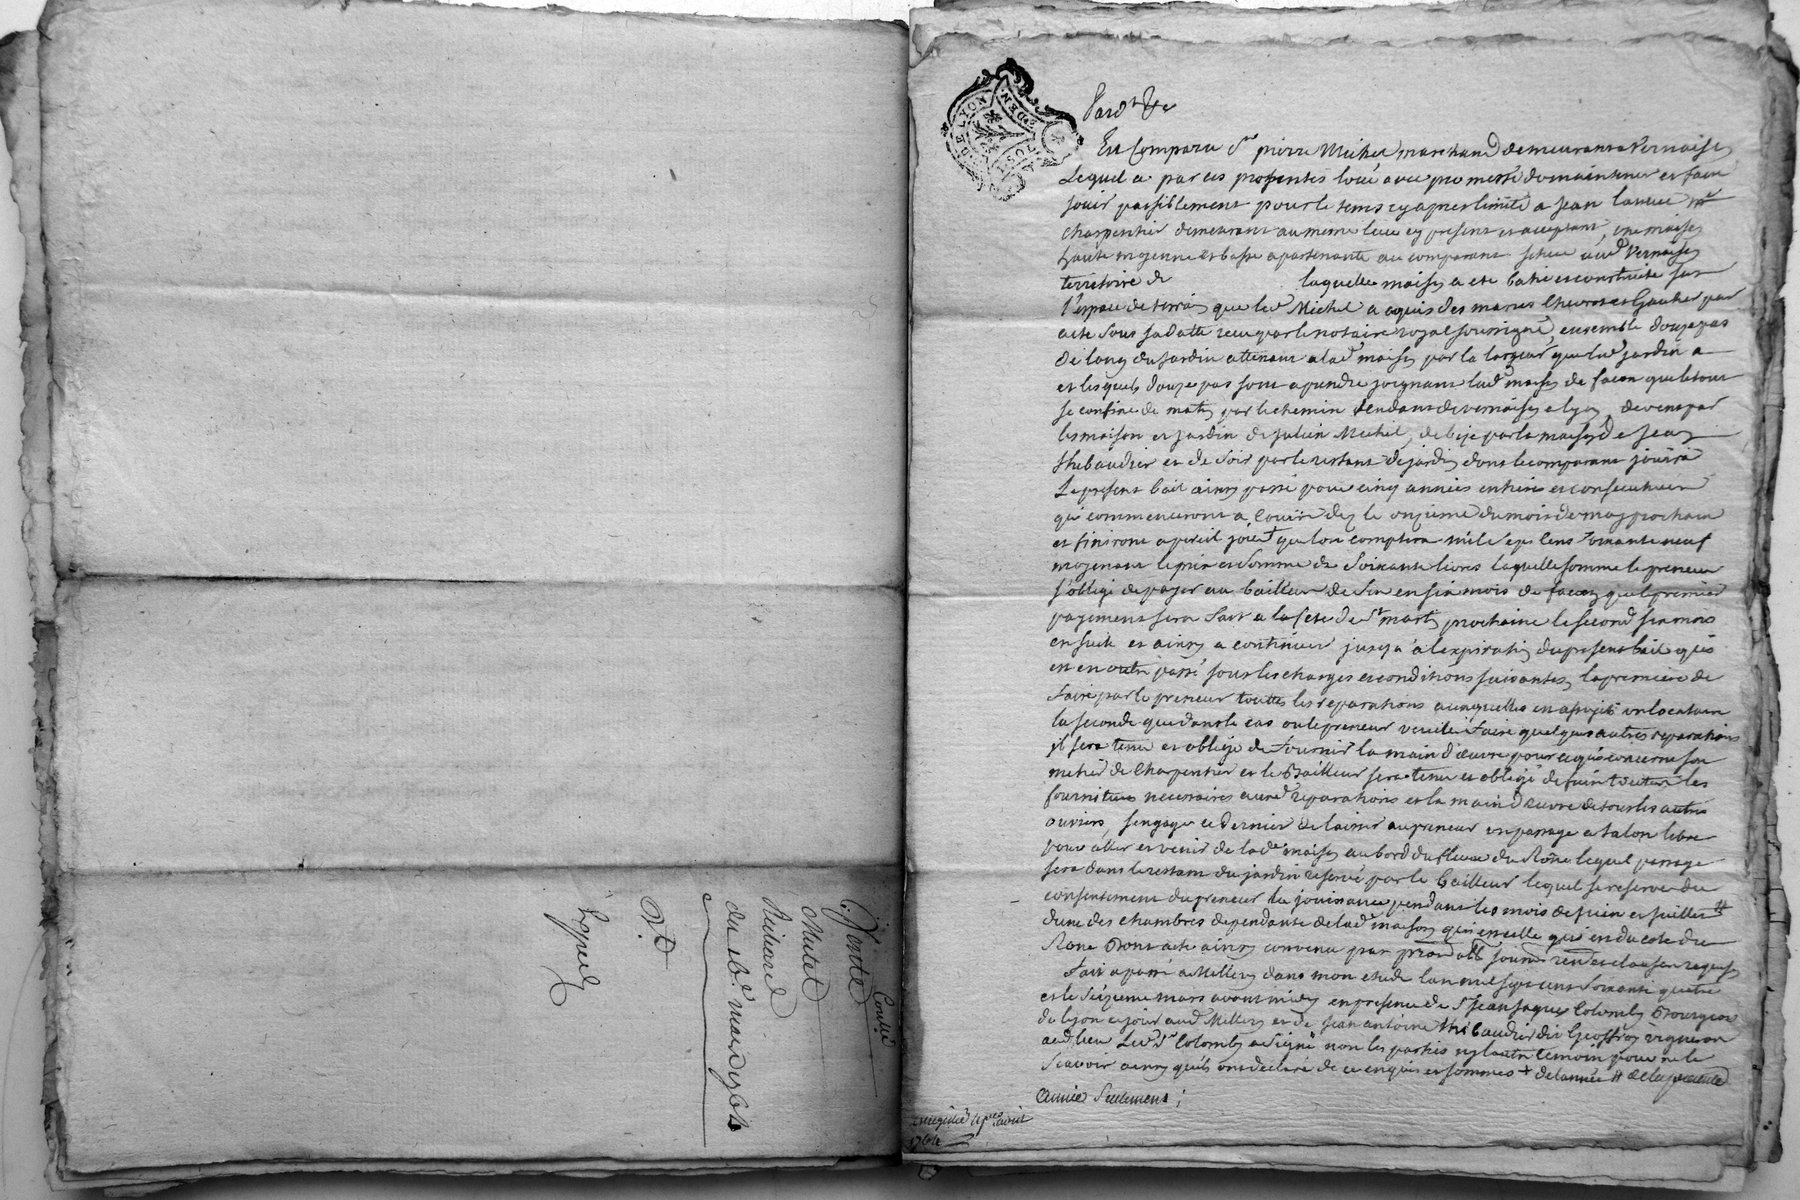 Vente
Mutel
Richard
du 16e. mai 1764
Exped
DE LYON
2. DEN.
Pard.t &c
Est Comparu Sr pierre Michel marchand demeurant a Vernaison
Lequel a par ces presentes loué avec promesse de maintenir et faire
jouir paisiblement pour le tems cy apres limité a jean mtre
charpentier demeurant au meme lieu cy present et acceptant, une maison
haute moyenne et basse apartenante au comparant scitué aud Vernaison
territoire de laquelle maison a été batie et construite sur
l'espace de terrain que led Michel a aquis des maries Chevrot et Gautier par
acte sous sa datte recu par le notaire royal soussigné, ensemble douze pas
de long du jardin attenant a lad maison par la largeur que led jardin a
et lesquels douze pas sont a prendre joignant lad maison de facon que le tout
se confine de matin par le chemin tendant de vernaison a lyon, de vent par
les maison et jardin de julien Michel, de bize par la maison de jean
thibaudier et de soir par le restant de jardin dont le comparant jouira
Le present bail ainsy passé pour cinq années entieres et consecutives
qui commenceront a courir dez le onzieme du mois de may prochain
et finiront a pareil jour + que lon comptera mil sept cens soixante neuf
moyenant le prix et somme de soixante livres laquelle somme le preneur
s'oblige de payer au bailleur de six en six mois de facon que le premier
payement sera fait a la fete de St martin prochaine le second six mois
ensuite et ainsy a continuer jusqu'a l'expiration du present bail qui
est en outre passé sous les charges et conditions suivantes, la premiere de
faire par le preneur touttes les reparations auxquelles est assujeti un locataire
la seconde que dans le cas ou le preneur veuille faire quelques autres reparations
il sera tenu et obligé de fournir la main d'oeuvre pour ce qui concerne son
metier de Charpentier et le Bailleur sera tenu et obligé de fair toutes les
fournitures necessaires auxd reparations et la main d'oeuvre de tous les autres
ouvriers, s'engage ce dernier de laisser au preneur un passage a talon libre
pour aller et venir de lad maison au bord du fleuve du Rône lequel passage
sera dans le restant du jardin reservé par le bailleur lequel se reserve du
consentement du preneur la jouissance pendant les mois de juin et juillet #
d'une des chambres dependante de lad maison qui est celle qui est du coté du
Rône Dont acte ainsy convenu par prom obl soum ren et clauses requises
Fait et passé a Millery dans mon etude l'an mil sept cens soixante quatre
et le seizieme mars avant midy en presence de Sr jean jaques Colomby Bourgeois
de lyon a jour aud Millery et de jean antoine thibaudier dit Geoffray vigneron
aud lieu Led Sr Colomby a signé non les parties ny l'autre temoin pour ne le
scavoir ainsy qu'ils ont declaré de ce enquis et sommés + de l'année # de la presente
année seulement;
1764